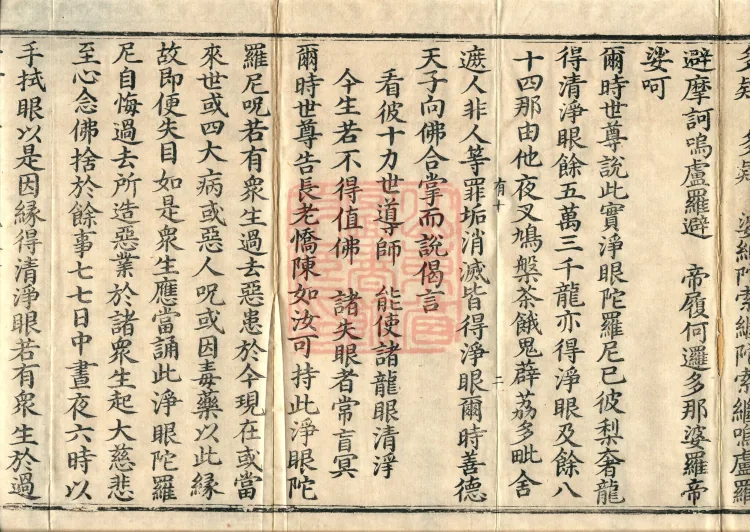 多疑　多疑　婆細陀索繼陀索繼嗚盧羅
避摩訶嗚盧羅避　帝履何邏多那婆羅帝
娑呵
爾時世尊說此實淨眼陀羅尼已彼梨奢龍
得清淨眼餘五萬三千龍亦得淨眼及餘八
十四那由他夜叉鳩槃茶餓鬼薜荔多毗舍
有十　二
遮人非人等罪垢消滅皆得淨眼爾時善德
天子向佛合掌而說偈言
看彼十力世導師　能使諸龍眼清淨
今生若不得值佛　諸失眼者常盲冥
爾時世尊告長老憍陳如汝可持此淨眼陀
羅尼呪若有眾生過去惡患於今現在或當
來世或四大病或惡人呪或因毒藥以此緣
故即便失目如是眾生應當誦此淨眼陀羅
尼自悔過去所造惡業於諸眾生起大慈悲
至心念佛捨於餘事七七日中晝夜六時以
手拭眼以是因緣得清淨眼若有眾生於過